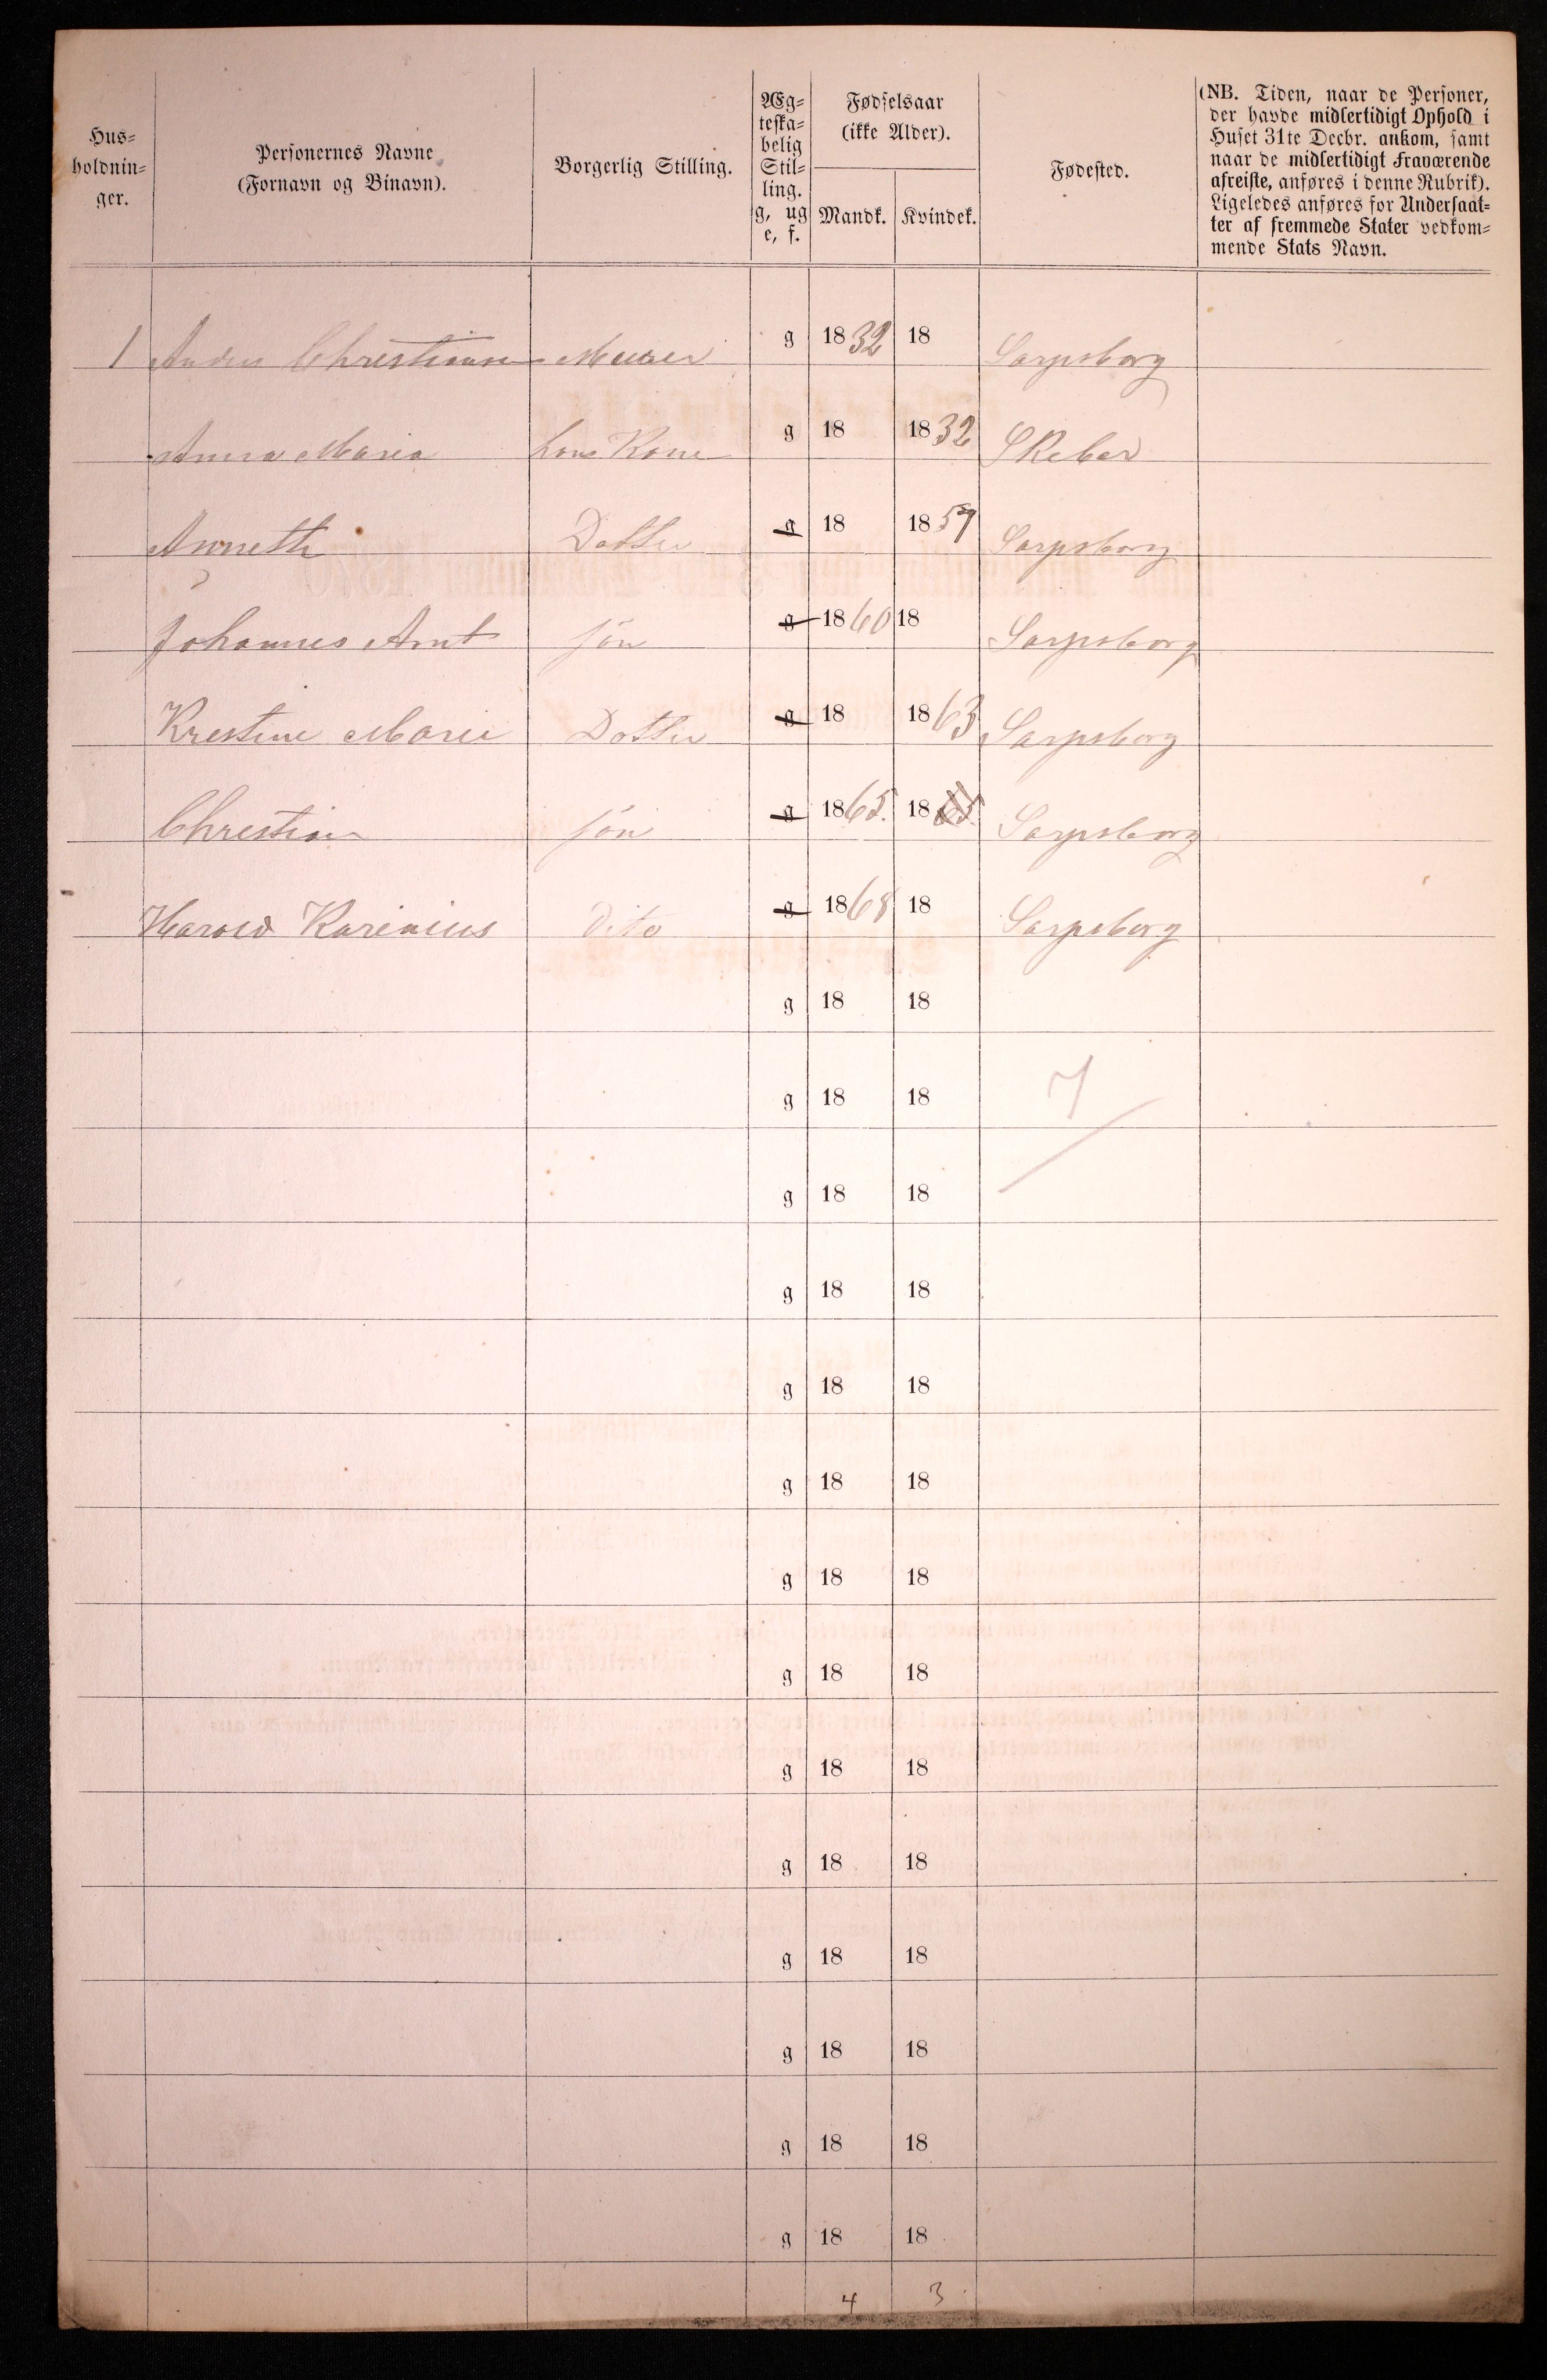 Hus=
holdnin=
ger.
Personernes Navne
(Fornavn og Binavn).
Borgerlig Stilling.
Æg=
teska=
belig
Stil=
ling.
g, ug
e, f.
Fødselsaar
(ikke Alder).
Mandk. Kvindek.
Fødested.
(NB. Tiden, naar de Personer,
der havde midlertidigt Ophold i
Huset 31te Decbr. ankom, samt
naar de midlertidigt Fraværende
afreiste, anføres i denne Rubrik).
Ligeledes anføres for Undersaat=
ter af fremmede Stater vedkom=
mende Stats Navn.
1 Anders Christiansen Murer g 1832 18 Sarpsborg
Anna Maria hans Kone g 18 1832 Skeber
Annethe Dotter g 18 1857 Sarpsborg
Johannes Arnt Søn g 1860 18 Sarpsborg
Krestine Marie Dotter g 18 1863 Sarpsborg
Christian Søn g 1865. 1865. Sarpsborg
Harald Karinius Dito g 1868 18 Sarpsborg
g 18 18
g 18 18 7
g 18 18
g 18 18
g 18 18
g 18 18
g 18 18
g 18 18
g 18 18
g 18 18
g 18 18
g 18 18
g 18 18
g 18 18
4 3